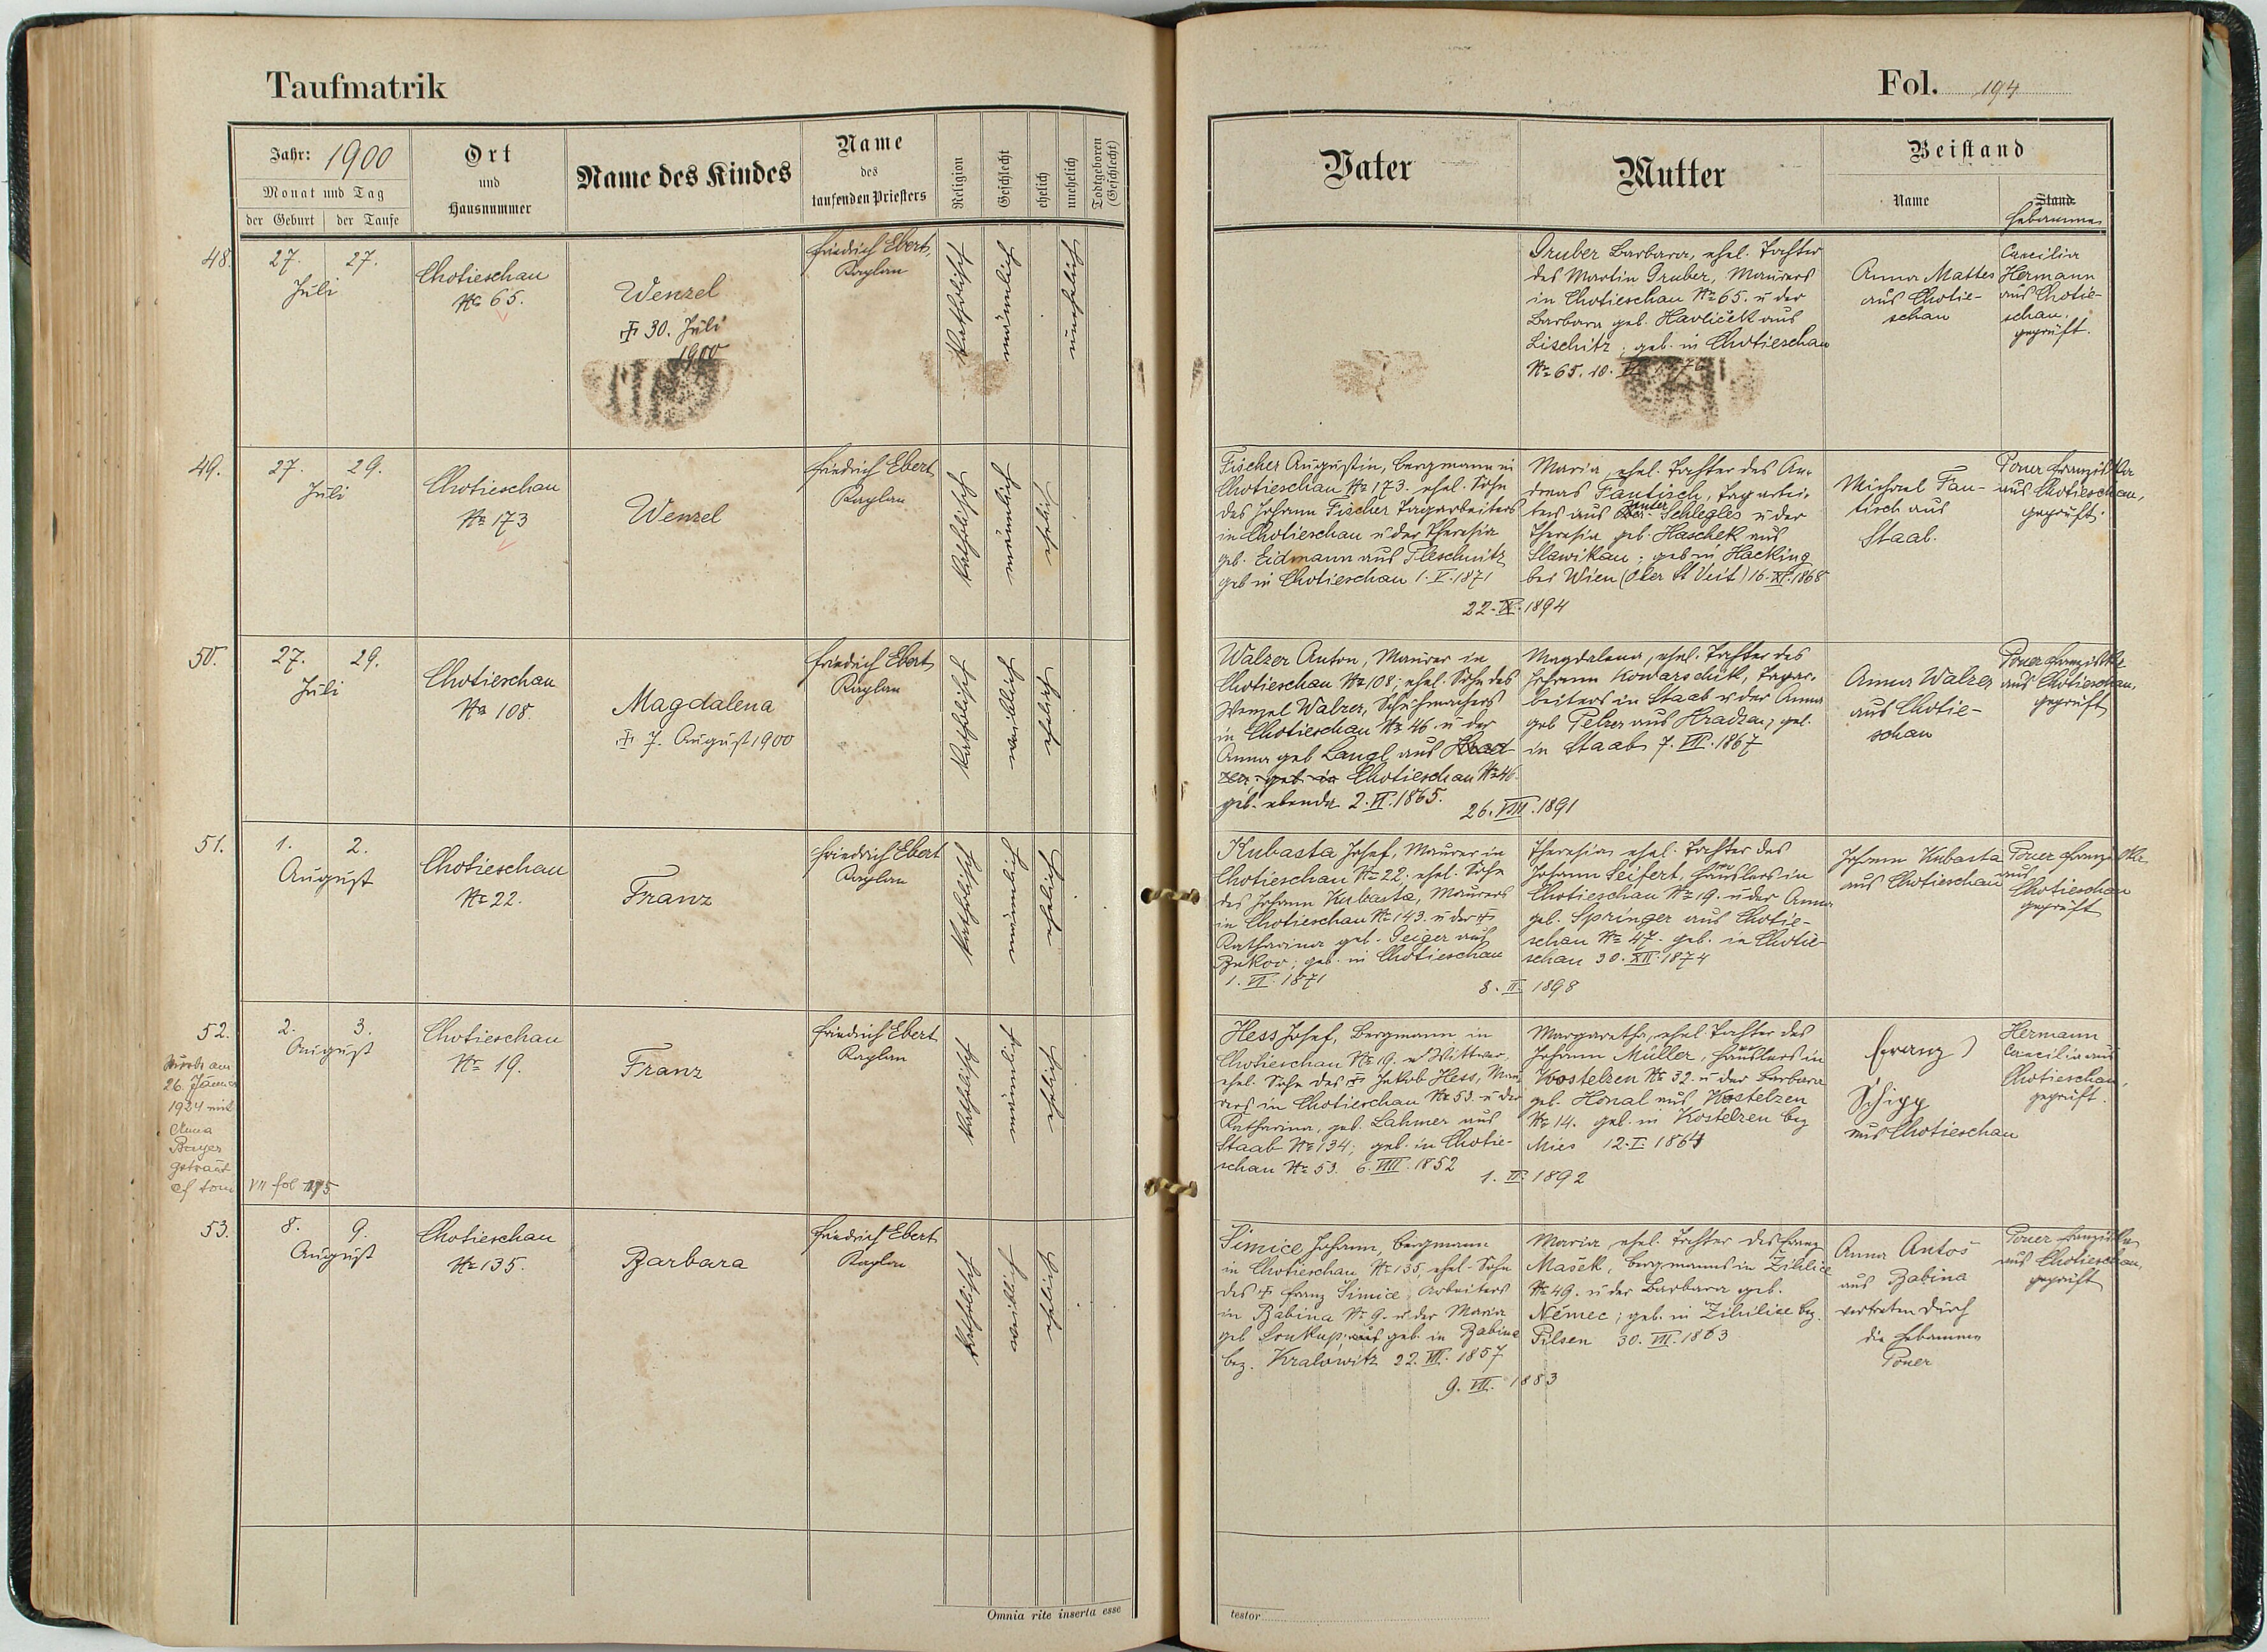 Taufmatrik
Fol. 194
Jahr: 1900
Monat und Tag
der Geburt
der Taufe
Ort
und
Hausnummer
Name des Kindes
Name
des
taufenden Priesters
Religion
Geschlecht
ehelich
unehelich
Todtgeboren
(Geschlecht)
Vater
Mutter
Beistand
Name
Stand
Hebamme
48.
27.
27.
Juli
Chotieschau
№ 65.
Wenzel
† 30. Juli
1900
Friedrich Ebert,
Kaplan
katholisch
männlich
unehelich
Gruber Barbara, ehel. Tochter
des Martin Gruber, Maurers
in Chotieschau № 65. u der
Barbara geb. Havliček aus
Lischitz; geb. in Chotieschau
№ 65. 10.
Anna Mattes
aus Chotie-
schau
Caecilia
Hermann
aus Chotie-
schau.
geprüft.
49.
27.
29.
Juli
Chotieschau
№ 173
Wenzel
Friedrich Ebert
Kaplan
katholisch
männlich
ehelich
Fischer Augustin, Bergmann in
Chotieschau № 173. ehel. Sohn
des Johann Fischer Tagarbeiters
in Chotieschau u der Theresia
geb. Eidmann aus Pleschnitz
geb in Chotieschau 1. V. 1871
Maria, ehel. Tochter des An-
dreas Fantisch, Tagarbei-
ters aus Unter-Schlegles u der
Theresia geb. Haschek aus
Slawikau; geb in Hacking
bei Wien (Ober St Veit) 16. XI. 1868
22. IX. 1894
Michael Fan-
tisch aus
Staab.
Poner Franziska
aus Chotieschau,
geprüft.
50.
27.
29.
Juli
Chotieschau
№ 108
Magdalena
† 7. August 1900
Friedrich Ebert
Kaplan
katholisch
weiblich
ehelich
Walzer Anton, Maurer in
Chotieschau № 108; ehel. Sohn des
Wenzel Walzer, Schuhmachers
in Chotieschau № 46 u der
Anna geb Langl aus
geb in Chotieschau № 46.
geb. ebenda 2. VI. 1865.
Magdalena, ehel. Tochter des
Johann Kowarschik, Tagar-
beiters in Staab u der Anna
geb Pelzer aus Hradzen; geb.
in Staab 7. VII. 1867
26. VIII. 1891
Anna Walzer
aus Chotie-
schau
Poner Franziska
aus Chotieschau,
geprüft
51.
1.
2.
August
Chotieschau
№ 22.
Franz
Friedrich Ebert
Kaplan
katholisch
männlich
ehelich
Kubasta Josef, Maurer in
Chotieschau № 22. ehel. Sohn
des Johann Kubasta, Maurers
in Chotieschau № 143. u der †
Katharina geb. Geiger aus
geb. in Chotieschau
1. VI. 1871
Theresia ehel. Tochter des
Johann Seifert, Häuslers in
Chotieschau № 19. u der Anna
geb. Springer aus Chotie-
schau № 47. geb. in Chotie-
schau 30. XII. 1874
8. II. 1898
Johann Kubasta
aus Chotieschau
Poner Franziska
aus
Chotieschau
geprüft
52.
26. Jänner
1924 mit
Anna
getraut
cf tom
VII fol 175
2.
3.
August
Chotieschau
№ 19.
Franz
Friedrich Ebert
Kaplan
katholisch
männlich
ehelich
Hess Josef, Bergmann in
Chotieschau № 19. Wittwer,
ehel. Sohn des † Jakob Hess, Mau-
rers in Chotieschau № 53. u der
Katharina, geb. Lahmer aus
Staab № 134; geb. in Chotie-
schau № 53. 6. VIII. 1852
Margaretha, ehel. Tochter des
Johann Müller, Häuslers in
Kostelzen № 32. u der Barbara
geb. Honal aus Kostelzen
№ 14. geb. in Kostelzen bez
Mies 12. I. 1864
1. II. 1892
Franz
Schipp
aus Chotieschau
Hermann
Caecilia aus
Chotieschau,
geprüft.
53.
8.
9.
August
Chotieschau
№ 135.
Barbara
Friedrich Ebert
Kaplan
katholisch
weiblich
ehelich
Simice Johann, Bergmann
in Chotieschau № 135, ehel. Sohn
des † Franz Simice, Arbeiters
in Babina № 9. u der Maria
geb Soukup. geb. in Babina
bez. Kralowitz 22. VII. 1857
Maria, ehel. Tochter des Franz
Mašek, Bergmanns in Zihlice
№ 49. u der Barbara geb.
Němec; geb. in Zihlice bez.
Pilsen 30. VII. 1863
9. VII. 1883
Anna Antoš
aus Babina
vertreten durch
die Hebamme
Poner
Poner Franziska
aus Chotieschau,
geprüft
Omnia rite inserta esse
testor